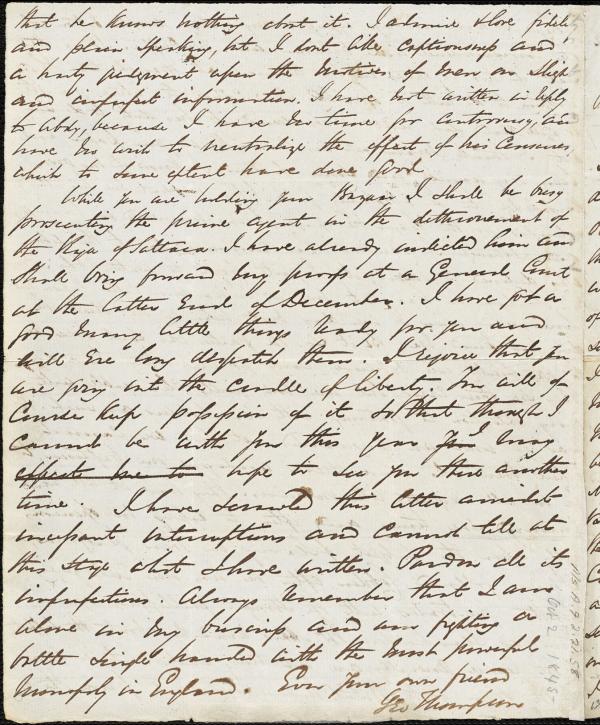 that he knows nothing about it. I admire & love fideli
and plain speaking, but I dont like captiousness and
a hasty judgment upon the motives of men on sligh
and imperfect information. I have not written in reply
to because I have no time for controversy, an
have no wish to neutralize the effect of his censures
which to some extent have done good.
While you are holding your Bazaar I shall be busy
prosecuting the prime agent in the dethronement of
the Raja of Sattara. I have already indicted him an
shall bring forward my proofs at a General Court
at the latter End of December. I have got a
good many little things ready for you and
will Ere long despatch them. I rejoice that you
are going into the Cradle of Liberty. You will of
Course keep possession of it so that though I
cannot be with you this year I may
expect me to hope to see you there another
time. I have scrawled this letter amidst
incessant interruptions and cannot tell at
this stage what I have written. Pardon all its
imperfections. Always remember that I am
alone in my business and am fighting a
battle single handed with the most powerful
Monopoly in England. Ever your own friend
Geo Thompson
Ms. A.9.2.21.58
Oct 2 1845